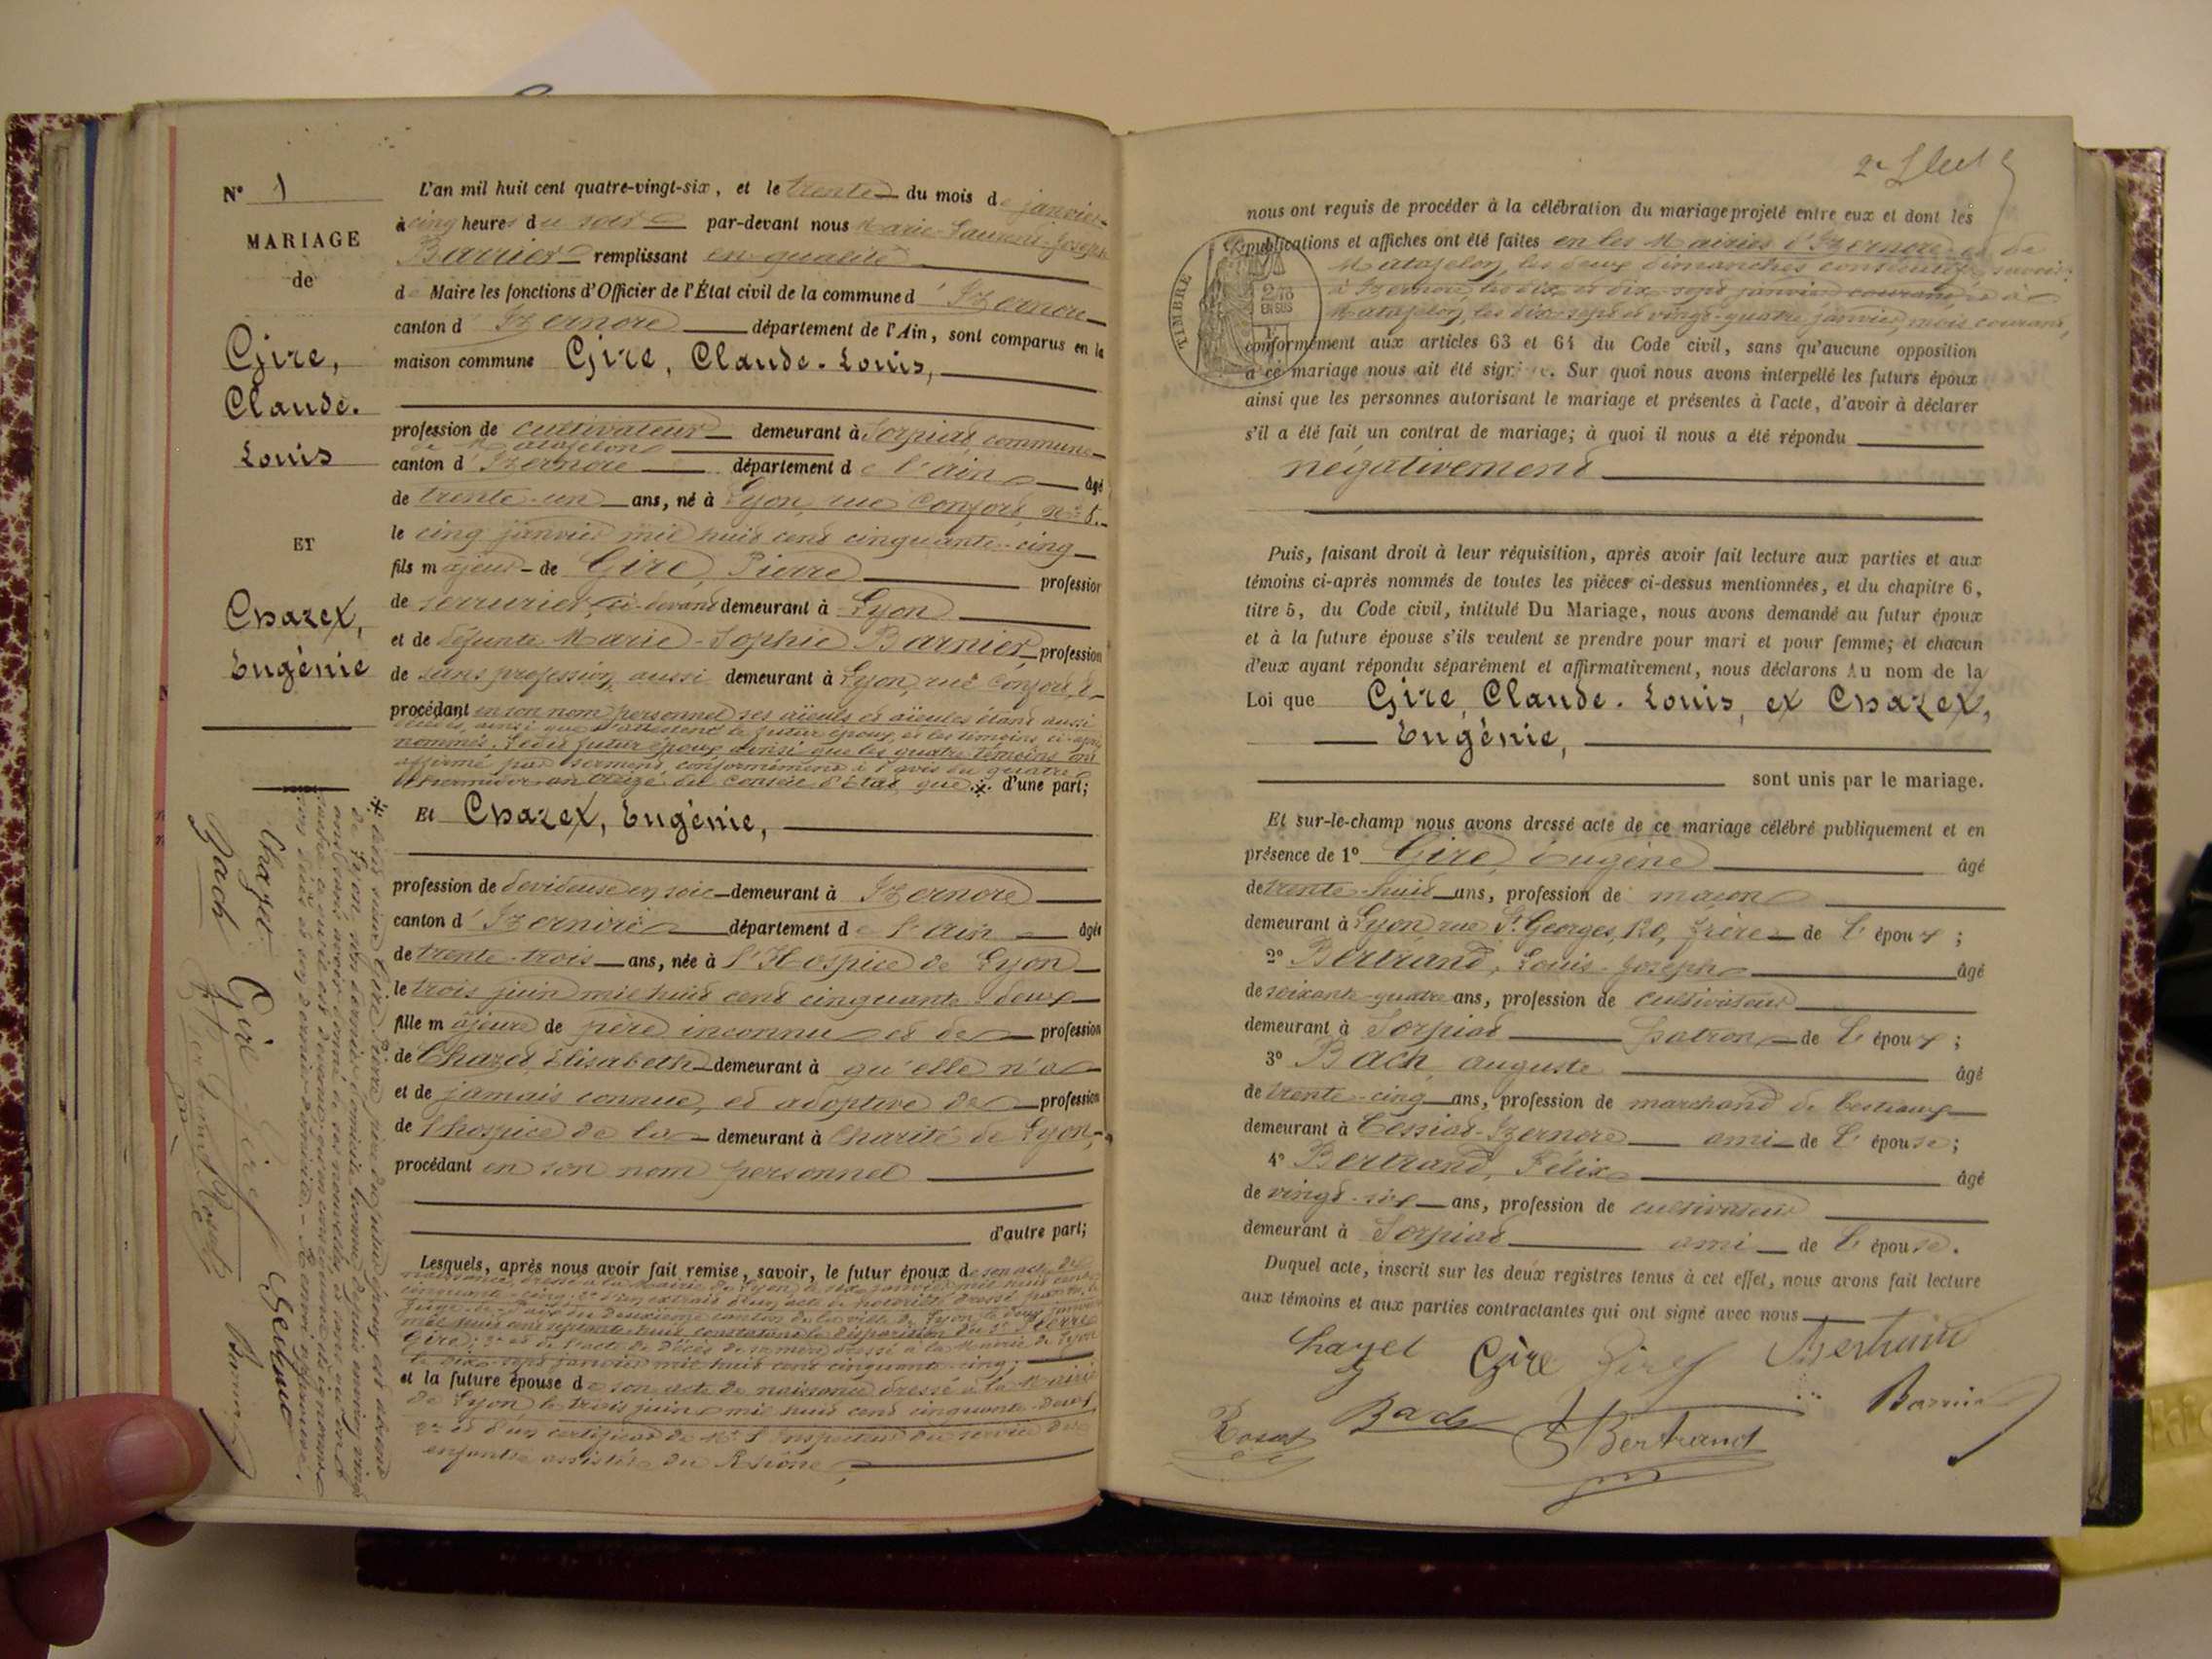 N° 1
MARIAGE
de
Gire,
Claude.
Louis
ET
Chazet,
Eugénie
L'an mil huit cent quatre-vingt-six, et le trente du mois de janvier
à cinq heures du soir par-devant nous Marie-Laurent-Joseph
Barrier remplissant en qualité
de Maire les fonctions d'Officier de l'État civil de la commune d'Izernore
canton d'Izernore département de l'Ain, sont comparus en la
maison commune Gire, Claude-Louis,
profession de cultivateur demeurant à Sorpiat, commune
de Matafelon
canton d'Izernore département de l'Ain âgé
de trente-un ans, né à Lyon, rue Confort, n° 5.
le cinq janvier mil huit cent cinquante-cinq
fils majeur de Gire, Pierre profession
de serrurier, ci-devant demeurant à Lyon
et de défunte Marie-Sophie Barnier, profession
de sans profession, aussi demeurant à Lyon, rue Confort, 5
procédant en son nom personnel ses aïeuls et aïeules étant aussi
décédés, ainsi que l'attestent le futur époux, et les témoins ci-après
nommés. Ledit futur époux ainsi que les quatre témoins ont
affirmé par serment, conformément à l'avis du quatre
thermidor an treize du Conseil d'État que ※ d'une part;
Et Chazet, Eugénie,
profession de dévideuse en soie demeurant à Izernore
canton d'Izernore département de l'Ain âgée
de trente-trois ans, née à l'Hospice de Lyon
le trois juin mil huit cent cinquante-deux
fille majeure de père inconnu et de profession
de Chazet, Elisabeth demeurant à qu'elle n'a
et de jamais connue, et adoptive de profession
de l'hospice de la demeurant à Charité de Lyon,
procédant en son nom personnel
d'autre part;
Lesquels, après nous avoir fait remise, savoir, le futur époux de son acte de
naissance, dressé à la Mairie de Lyon, le six janvier mil huit cent
cinquante-cinq; 2° d'un extrait d'un acte de notoriété dressé par le
Juge-de-Paix du deuxième canton de la ville de Lyon, le janvier
mil huit cent septante-huit constatant la disparition du Sr Pierre
Gire; 3° et de l'acte de décès de sa mère dressé à la Mairie de Lyon
le dix-sept janvier mil huit cent cinquante-cinq;
et la future épouse de son acte de naissance dressé à la Mairie
de Lyon, le trois juin mil huit cent cinquante-deux
2° et d'un certificat de Mr l'Inspecteur du service des
enfants assistés du Rhône
※ Pierre père du futur époux est absent
de Lyon, son dernier domicile connu, depuis environ vingt
ans sans avoir donné de ses nouvelles, et
Chazet Gire Gire Bertrand
Bach Bertrand Rosat Barrier
2e
nous ont requis de procéder à la célébration du mariage projeté entre eux et dont les
publications et affiches ont été faites en les Mairies d'Izernore et de
Matafelon, les deux dimanches consécutifs, savoir:
à Izernore, les dix et dix-sept janvier courant, et à
Matafelon, les dix-sept et vingt-quatre janvier, mois courant,
conformément aux articles 63 et 64 du Code civil, sans qu'aucune opposition
à ce mariage nous ait été signifiée. Sur quoi nous avons interpellé les futurs époux
ainsi que les personnes autorisant le mariage et présentes à l'acte, d'avoir à déclarer
s'il a été fait un contrat de mariage; à quoi il nous a été répondu
négativement
TIMBRE
2/10
EN SUS
Puis, faisant droit à leur réquisition, après avoir fait lecture aux parties et aux
témoins ci-après nommés de toutes les pièces ci-dessus mentionnées, et du chapitre 6,
titre 5, du Code civil, intitulé Du Mariage, nous avons demandé au futur époux
et à la future épouse s'ils veulent se prendre pour mari et pour femme; et chacun
d'eux ayant répondu séparément et affirmativement, nous déclarons Au nom de la
Loi que Gire, Claude-Louis, et Chazet,
Eugénie,
sont unis par le mariage.
Et sur-le-champ nous avons dressé acte de ce mariage célébré publiquement et en
présence de 1° Gire, Eugène âgé
de trente-huit ans, profession de maçon
demeurant à Lyon, rue St Georges, 120, frère de l'époux;
2° Bertrand, Louis-Joseph âgé
de soixante-quatre ans, profession de cultivateur
demeurant à Sorpiat patron de l'époux;
3° Bach auguste âgé
de trente-cinq ans, profession de marchand de bestiaux
demeurant à Cessiat-Izernore ami de l'épouse;
4° Bertrand, Félix âgé
de vingt-six ans, profession de cultivateur
demeurant à Sorpiat ami de l'épouse.
Duquel acte, inscrit sur les deux registres tenus à cet effet, nous avons fait lecture
aux témoins et aux parties contractantes qui ont signé avec nous
Chazet Gire Gire Bertrand
Rosat Bach F Bertrand Barrier